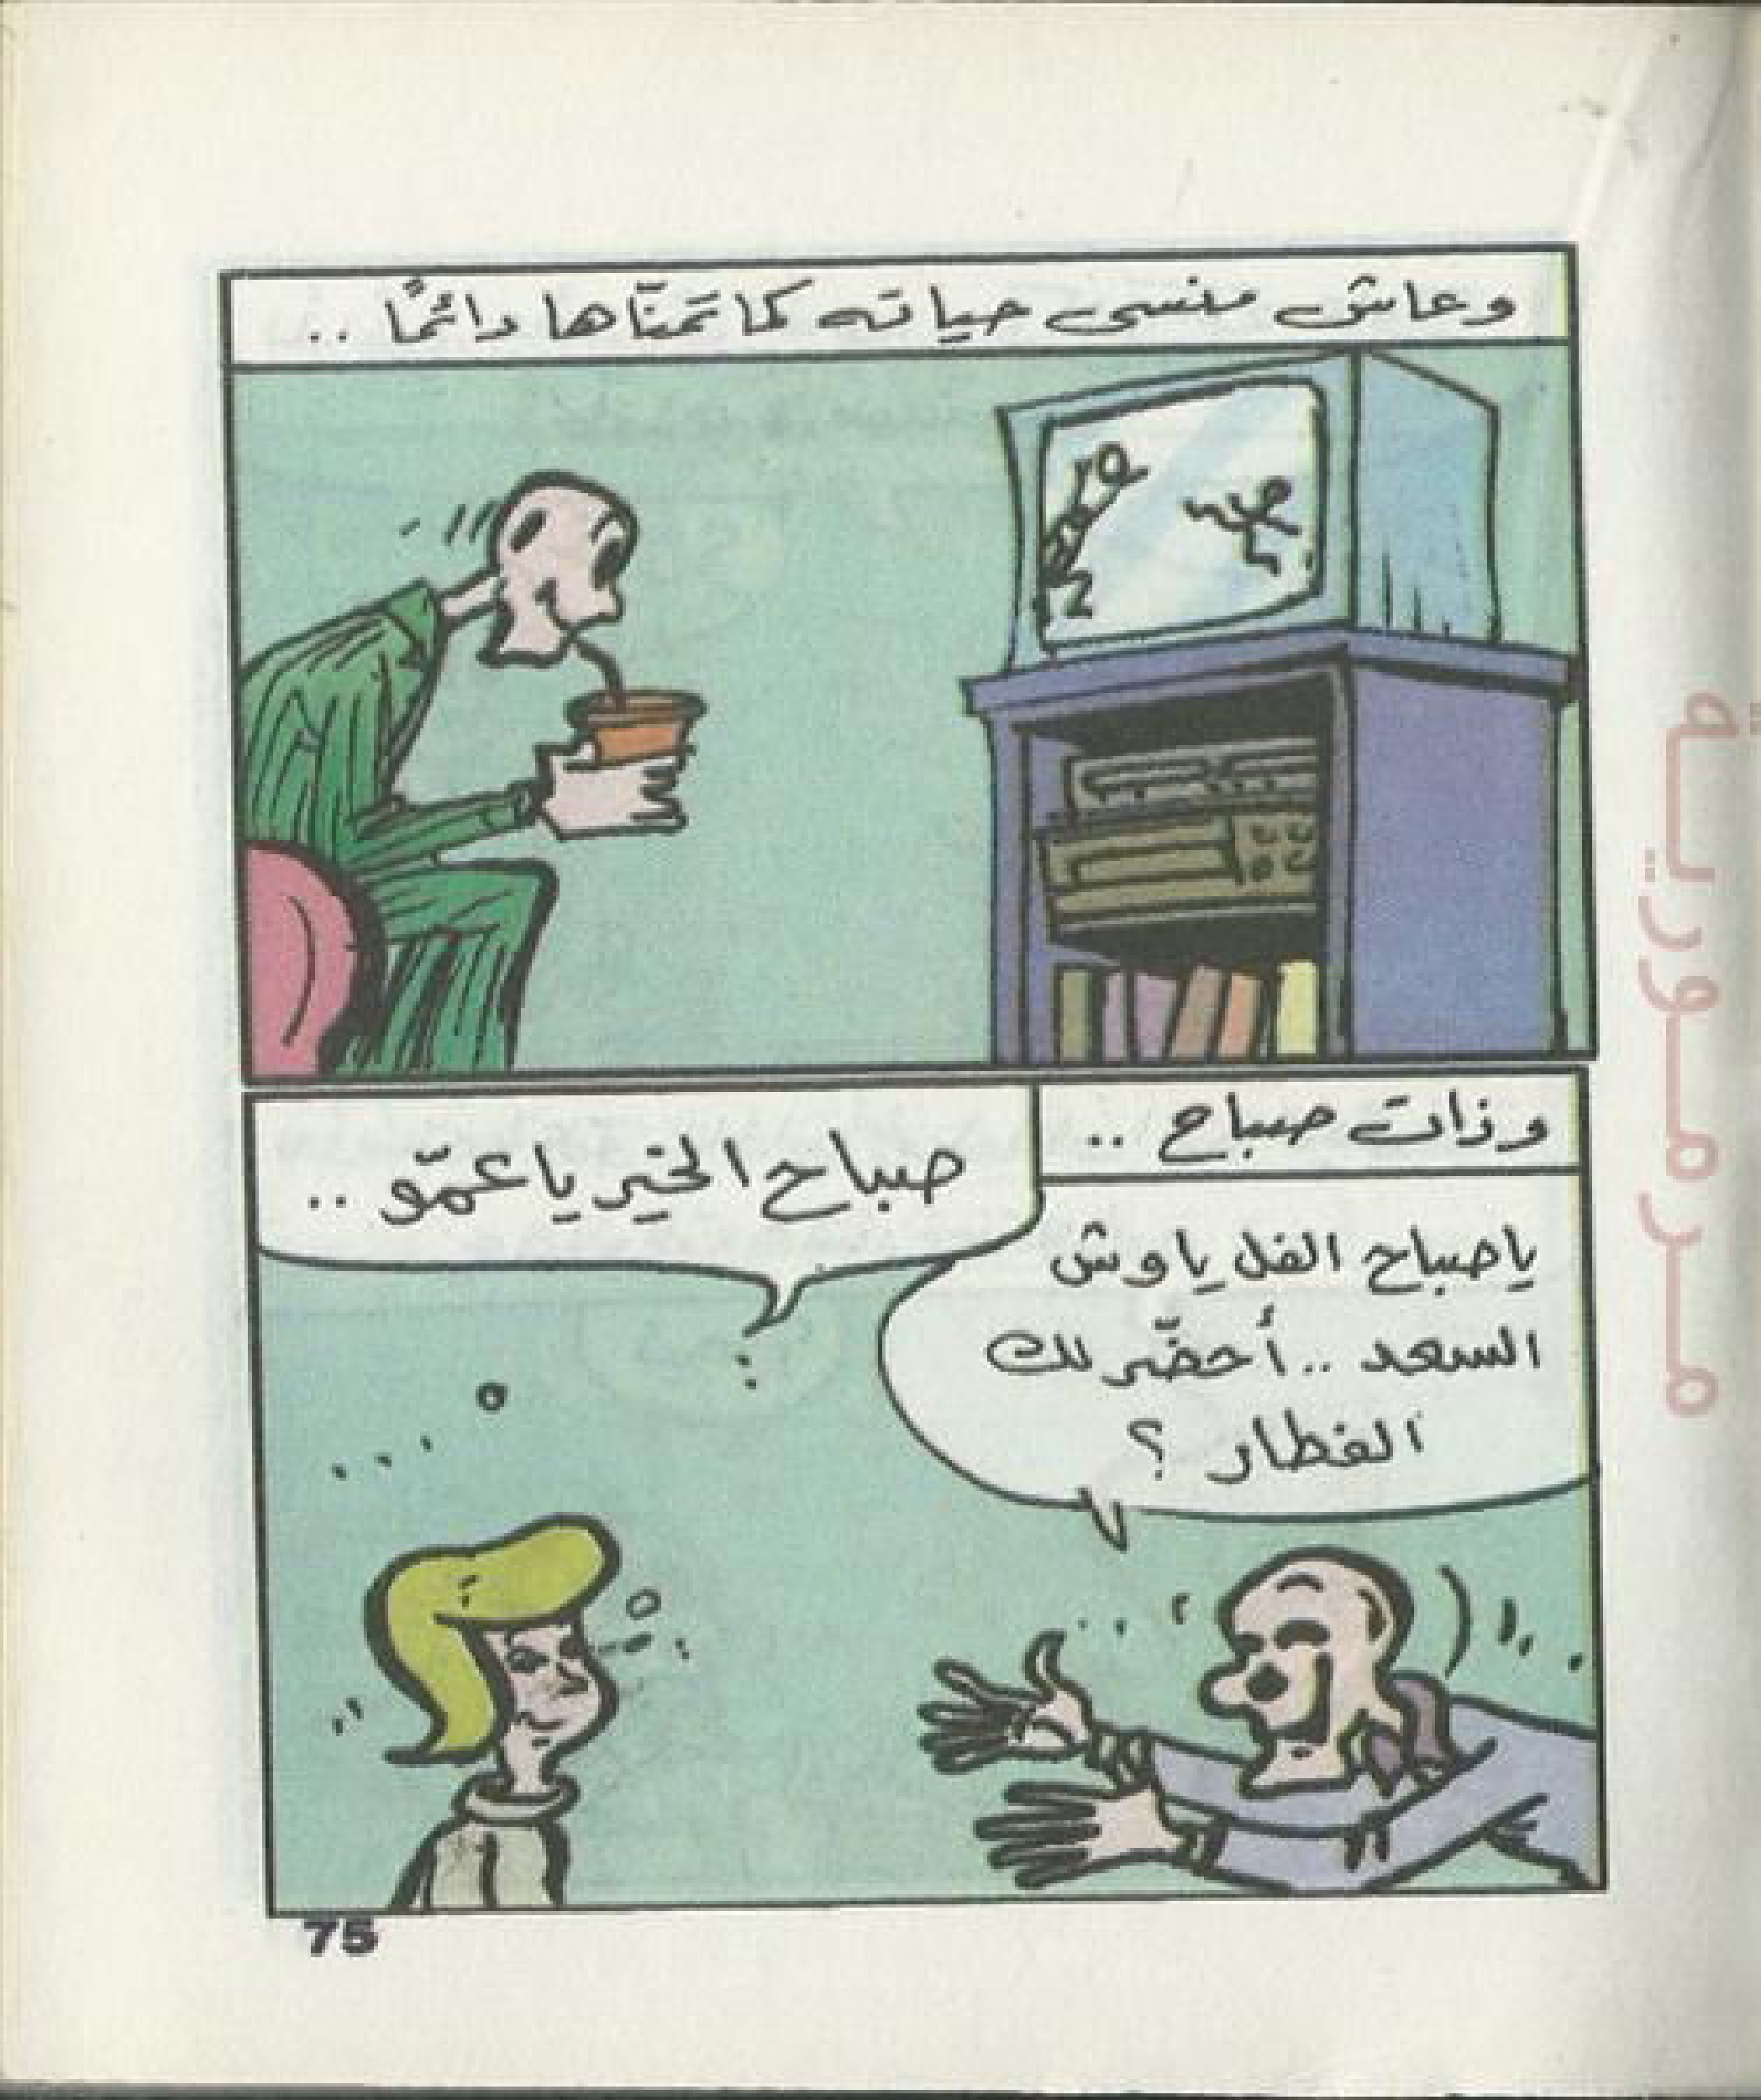 وعاش منسى حياته كما تَمَنّاها دائمًا ..
وذات صباح ..
صباح الخير يا عمّو ..
ياصباح الفل ياوش
السعد .. أحضّر لك
الفطار ؟
75
مدرمورية